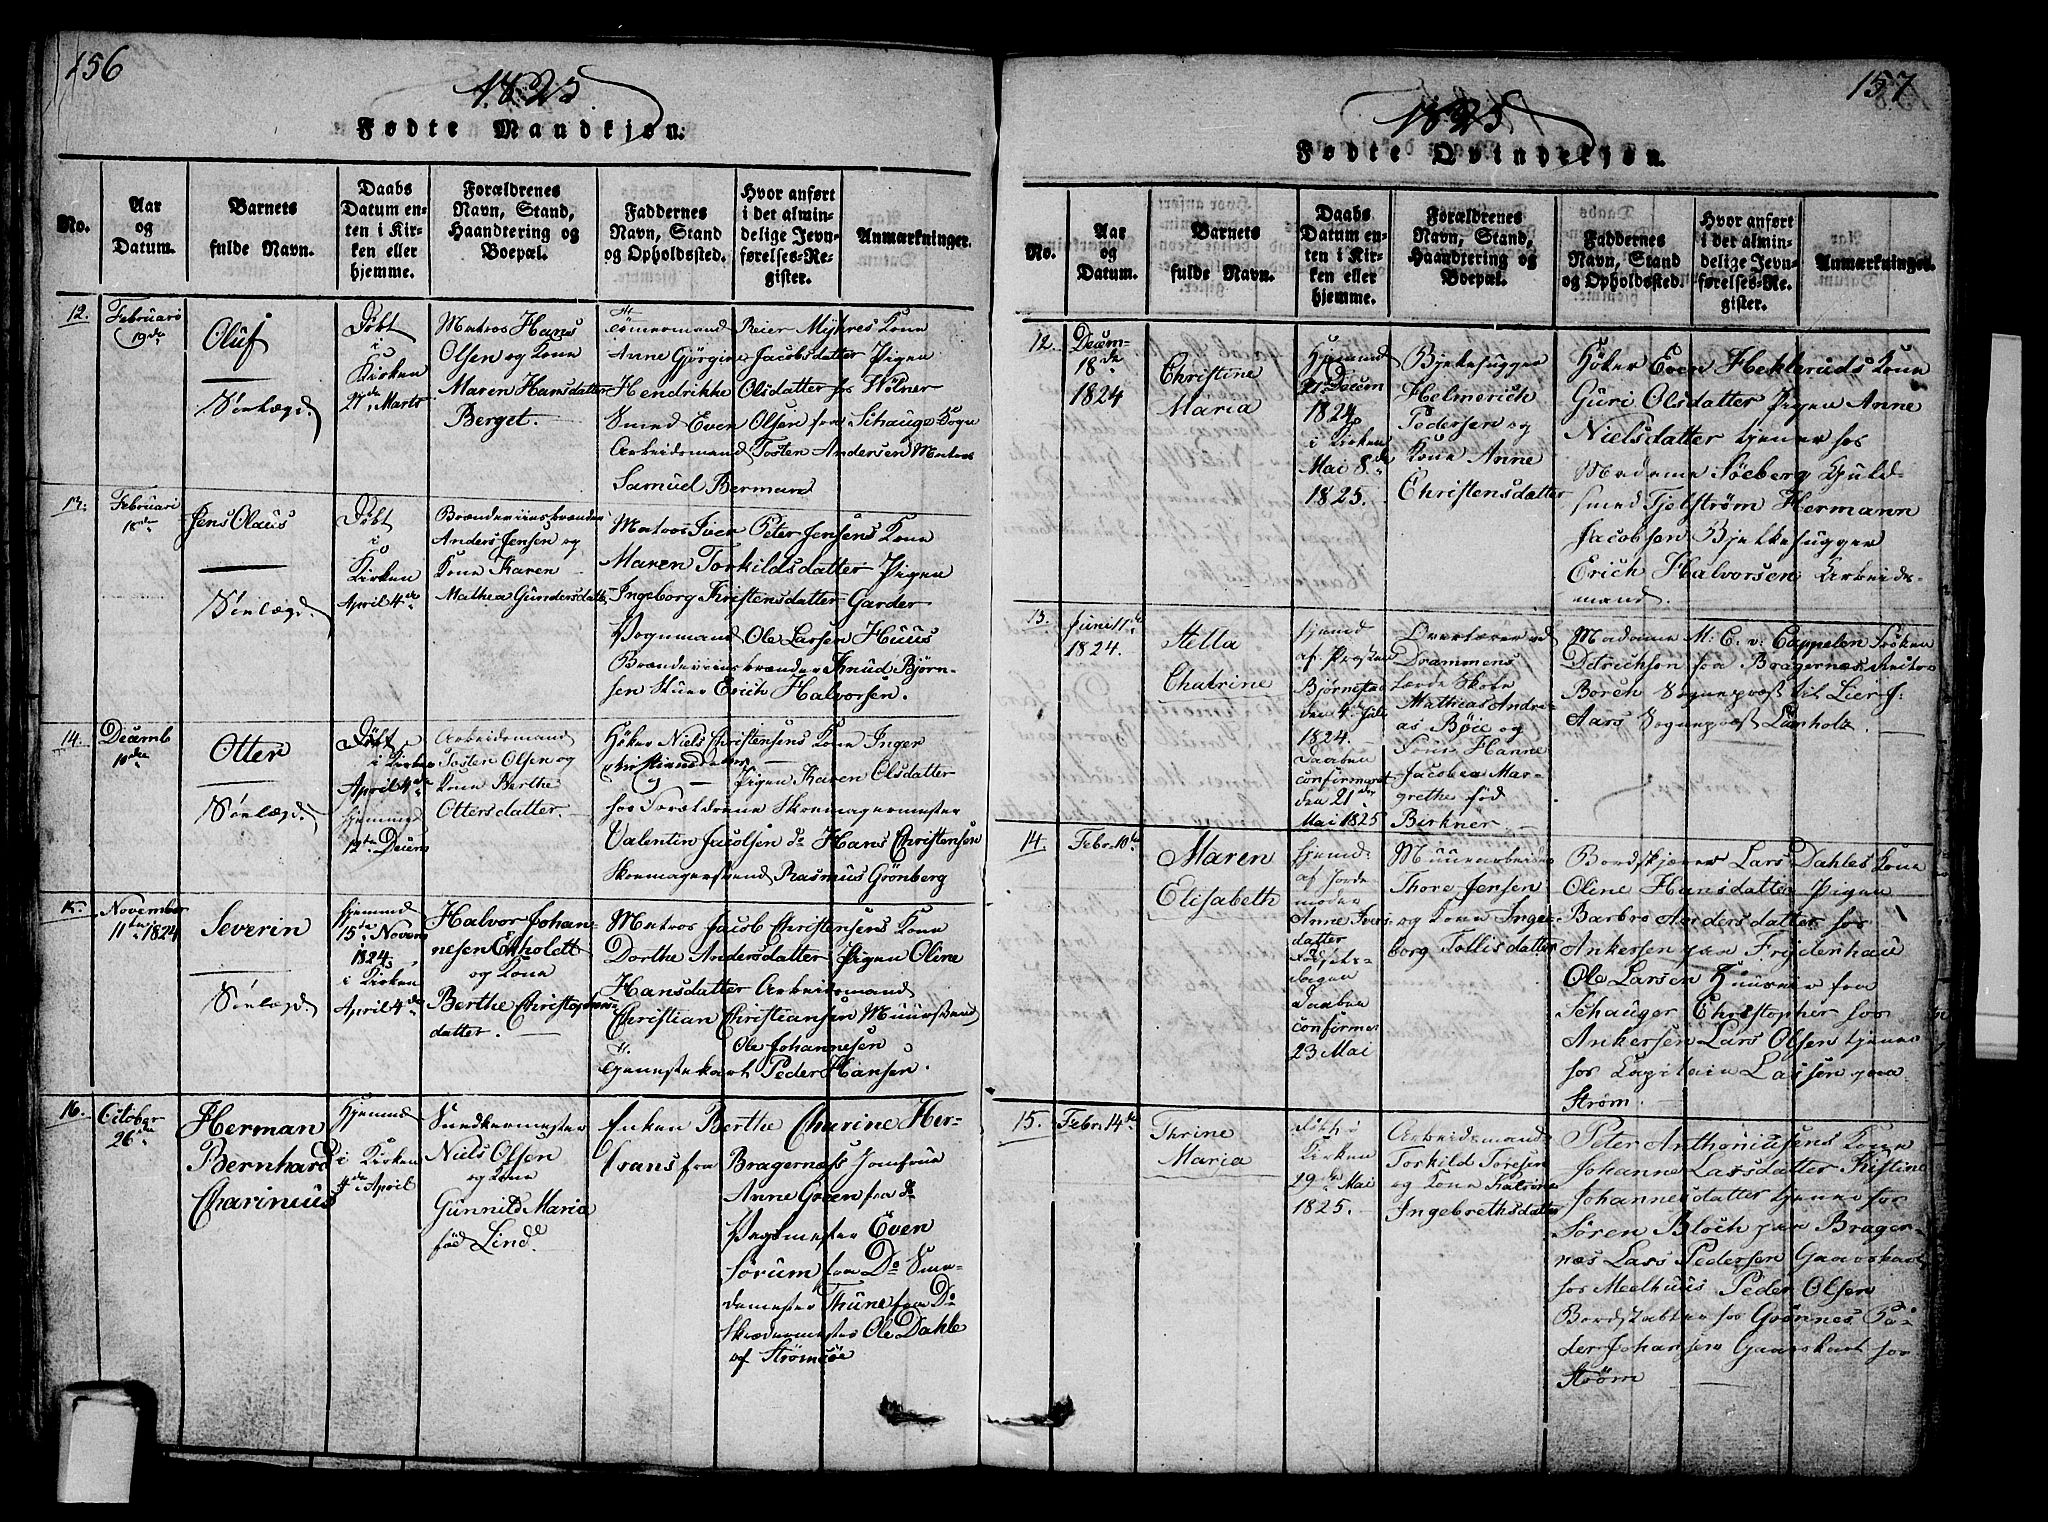 156
1825
Fødte Mandkjøn.
No.
Aar
og
Datum.
Barnets
fulde Navn.
Daabs
Datum en-
ten i Kir-
ken eller
hjemme.
Forældrenes
Navn, Stand,
Haandtering og
Boepæl.
Faddernes
Navn, Stand
og Opholdssted.
Hvor anført
i det almin-
delige Jevn-
førelses-Re-
gister.
Anmærkninger.
12.
Februari
19de
Oluf
Sinlægd.
Døbt
i
Kirken
27de Marts
Matros Hans
Olsen og Kone
Maren Hansdatter
Berget.
Tømermand Reier Myhres Kone
Anne Gjørgine Jacobsdatter Pigen
Hendrikke Olsdatter hos Wølner
Smed Even Olsen fra Schauge Sogn
Arbeidsmand Tosten Andersen Matros
Samuel Berman
13.
Februari
18de
Jens Olaus
Sinlægd.
Døbt
i
Kirken
April 4de
Brændeviinsbrænder
Anders Jensen og
Kone Karen
Mathea Gundersdatt
Matros Iver Peter Jensens Kone
Maren Torkildsdatter Pigen
Ingeborg Kristensdatter Garder
Vognmand Ole Larsen Huus
Brændeviinsbrænder Knud Bjørn-
sen Erich Halvorsen.
14.
Decemb
10de
Otter
Sinlægd.
Døbt
i Kirken
April 4de
hjemme
12te Decem
Arbeidsmand
Tosten Olsen og
Kone Berthe
Ottersdatter.
Høker Niels Christensens Kone Inger
Christiansdatter
Pigen Karen Olsdatter
hos Forældrene Skomagermester
Valentin Jacobsen do Hans Christensen
Skomagersvend Rasmus Grønberg
15.
November
11te 1824
Severin
Sinlægd.
hjemme
15de Novem
1824
i Kirken
April 4de
Halvor Johan-
nesen Ekholdt
og Kone
Berthe Christophers
datter.
Matros Jacob Christensens Kone
Dorthe Andersdatter Pigen Oline
Hansdatter Arbeidsmand
Christian Christiansen Muursvend
Ole Johannesen
Tjenestekarl Peder Hansen.
16.
October
26de
Herman
Bernhard
Charinus
hjemme
i Kirken
4de April
Niels Olsen
og Kone
Gunnild Maria
fød Lind.
Enken Berthe Charine Her-
frans fra Bragernæss Jomfrue
Anne Green fra do
Even
Sørum fra Do
Thune fra Do
Skrædermester Ole Dahle
af Strømsøe
157
1825
Fødte Qvindekjøn.
No.
Aar
og
Datum.
Barnets
fulde Navn.
Daabs
Datum en-
ten i Kir-
ken eller
hjemme.
Forældrenes
Navn, Stand,
Haandtering og
Boepæl.
Faddernes
Navn, Stand
og Opholdssted.
Hvor anført
i det almin-
delige Jevn-
førelses-Re-
gister.
Anmærkninger.
12.
Decem-
18de
1824
Christine
Maria
Hjemme
21de Decem
1824
i Kirken
Mai 8de
1825.
Bjelkehugger
Helmerich
Pedersen og
Kone Anne
Christensdatter
Høker Even Hekleruds Kone
Guri Olsdatter Pigen Anne
Nielsdatter tjener hos
Madame Søeberg Guld-
smed Fjelstrøm Hermann
Jacobsen Bjelkehugger
Erich Halvorsen Arbeids-
mand.
13.
Juni 11te
1824.
Stella
Chatrine
hjemme
af Præsten
Bjørnstad
den 4de Juli
1824.
Daaben
confirmeret
den 21de
Mai 1825
Overlærer ved
Drammens
Lærde Skole
Mathias Andre-
as Bøie og
Hanne
Jacobea Mar-
grethe fød
Birkner.
Madame M: C. v: Cappelen Frøken
Ditrichson fra Bragernæs
Borch Sogneprest til Lier J:
Aars Sogneprest Lamholz.
14.
Febr. 10de
Maren
Elisabeth
hjemme
af Jorde
moder
Anne Ivers
datter
Daaben
confirmer
23 Mai
Muurarbeider
Thore Jensen
og Kone Inge-
borg Tollisdatter
Bordskjærer Lars Dahles Kone
Oline Hansdatter Pigen
Barbro Andersdatter hos
Ankersen paa Frydenhau
Ole Larsen Huusvær fra
Schauger Christopher hos
Ankersen Lars Olsen tjener
hos Capitain Lassen paa
Strøm.
15.
Febr. 14de
Thrine
Maria
Kirken
29de Mai
1825.
Arbeidsmand
Torkild Toresen
og Kone Katrine
Ingebrethsdatter
Peter Anthoniusens Kone
Johanne Larsdatter Kistine
Johannesdatter tjener hos
Søren Bloch paa Brager-
næs Lars Pedersen Gaardskarl
hos Meelhuus Peder Olsen
Grønnes Pe-
der Johansen Gaardskarl hos
Strøm